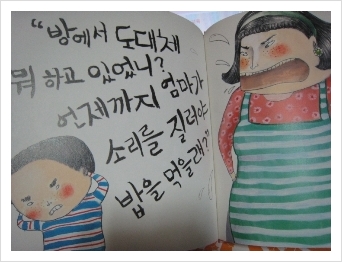 "방에서 도대체
뭐 하고 있었니?
언제까지 엄마가
소리를 질러야
밥을 먹을래?"